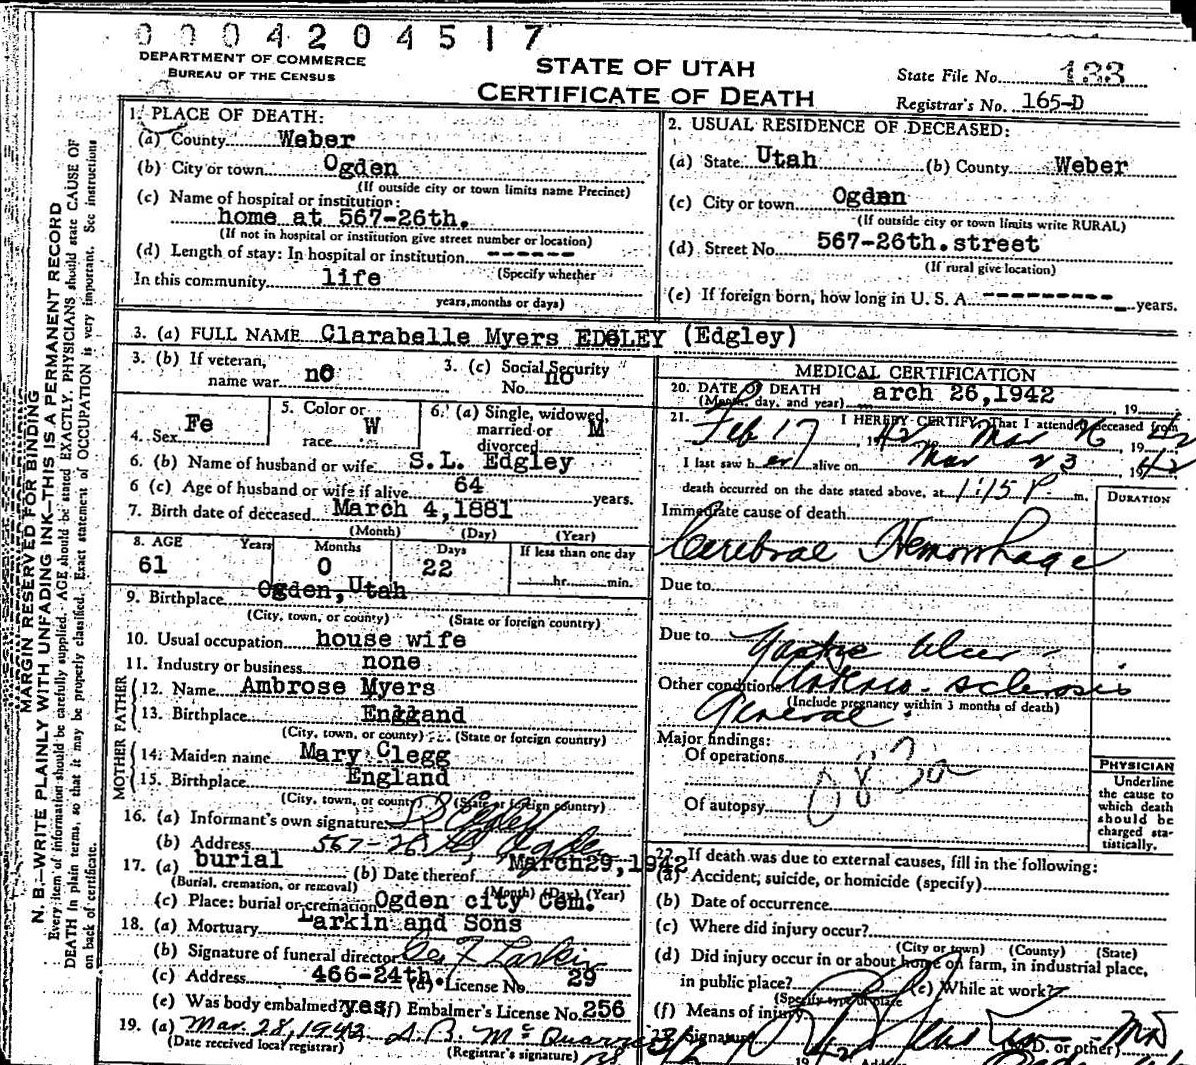 0004204517
DEPARTMENT OF COMMERCE
BUREAU OF THE CENSUS
STATE OF UTAH
CERTIFICATE OF DEATH
State File No. 133
Registrar's No. 165-D
MARGIN RESERVED FOR BINDING
N. B.—WRITE PLAINLY WITH UNFADING INK—THIS IS A PERMANENT RECORD
Every item of information should be carefully supplied. AGE should be stated EXACTLY. PHYSICIANS should state CAUSE OF
DEATH in plain terms, so that it may be properly classified. Exact statement of OCCUPATION is very important. See instructions
on back of certificate.
1. PLACE OF DEATH:
(a) County Weber
(b) City or town Ogden
(If outside city or town limits name Precinct)
(c) Name of hospital or institution:
home at 567-26th.
(If not in hospital or institution give street number or location)
(d) Length of stay: In hospital or institution -------
(Specify whether
In this community life
years, months or days)
2. USUAL RESIDENCE OF DECEASED:
(a) State Utah (b) County Weber
(c) City or town Ogden
(If outside city or town limits write RURAL)
(d) Street No. 567-26th.street
(If rural give location)
(e) If foreign born, how long in U. S. A. ---------- years.
3. (a) FULL NAME Clarabelle Myers EDGLEY (Edgley)
3. (b) If veteran,
name war no
3. (c) Social Security
No. no
4. Sex Fe
5. Color or
race W
6. (a) Single, widowed,
married or
divorced M
6. (b) Name of husband or wife S.L. Edgley
6 (c) Age of husband or wife if alive 64 years.
7. Birth date of deceased March 4,1881
(Month) (Day) (Year)
8. AGE Years Months Days If less than one day
61 0 22 hr. min.
9. Birthplace Ogden,Utah
(City, town, or county) (State or foreign country)
10. Usual occupation house wife
11. Industry or business none
FATHER
12. Name Ambrose Myers
13. Birthplace England
(City, town, or county) (State or foreign country)
MOTHER
14. Maiden name Mary Clegg
15. Birthplace England
(City, town, or county) (State or foreign country)
16. (a) Informant's own signature
(b) Address 567-26 St Ogden
17. (a) burial (b) Date thereof March29,1942
(Burial, cremation, or removal) (Month) (Day) (Year)
(c) Place: burial or cremation Ogden city Cem.
18. (a) Mortuary Larkin and Sons
(b) Signature of funeral director Larkin
(c) Address 466-24th. (d) License No. 29
(e) Was body embalmed? yes (f) Embalmer's License No. 256
19. (a) Mar. 28, 1942
(Date received local registrar) (Registrar's signature)
MEDICAL CERTIFICATION
20. DATE OF DEATH
(Month, day, and year) arch 26,1942 19
21. I HEREBY CERTIFY, That I attended deceased from
Feb 17 1942 Mar 26 1942
I last saw her alive on Mar 23 1942
death occurred on the date stated above, at 1:15 P. m.
DURATION
Immediate cause of death
Cerebral Hemorrhage
Due to
Due to Gastric Ulcer
Other conditions Arterio-sclerosis
(Include pregnancy within 3 months of death)
General
Major findings:
Of operations
83a
Of autopsy
PHYSICIAN
Underline
the cause to
which death
should be
charged sta-
tistically.
22. If death was due to external causes, fill in the following:
(a) Accident, suicide, or homicide (specify)
(b) Date of occurrence
(c) Where did injury occur?
(City or town) (County) (State)
(d) Did injury occur in or about home on farm, in industrial place,
in public place? (e) While at work?
(Specify type of place
(f) Means of injury
23. Signature (M.D. or other)